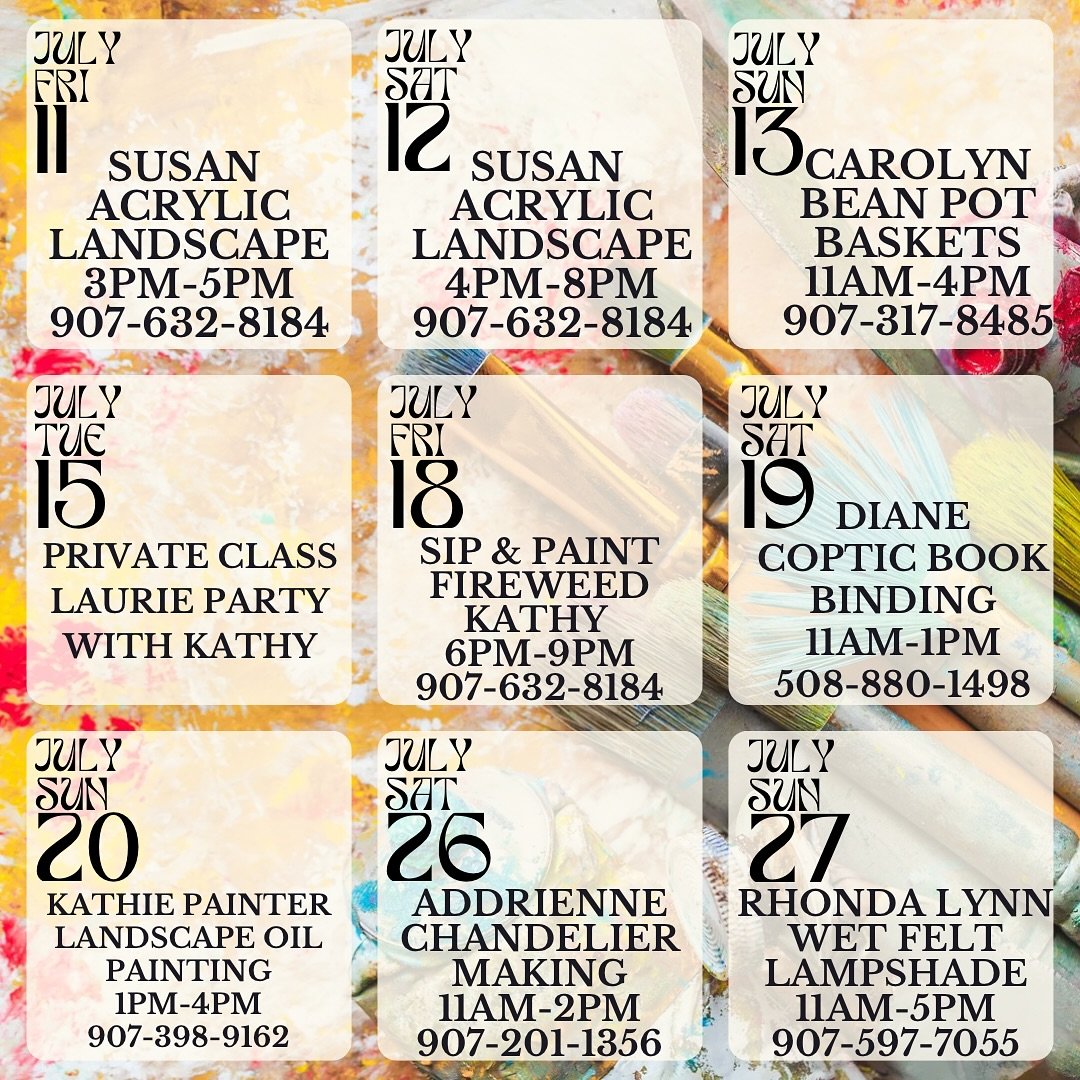 JULY
FRI
11
SUSAN
ACRYLIC
LANDSCAPE
3PM-5PM
907-632-8184
JULY
SAT
12
SUSAN
ACRYLIC
LANDSCAPE
4PM-8PM
907-632-8184
JULY
SUN
13
CAROLYN
BEAN POT
BASKETS
11AM-4PM
907-317-8485
JULY
TUE
15
PRIVATE CLASS
LAURIE PARTY
WITH KATHY
JULY
FRI
18
SIP & PAINT
FIREWEED
KATHY
6PM-9PM
907-632-8184
JULY
SAT
19
DIANE
COPTIC BOOK
BINDING
11AM-1PM
508-880-1498
JULY
SUN
20
KATHIE PAINTER
LANDSCAPE OIL
PAINTING
1PM-4PM
907-398-9162
JULY
SAT
26
ADDRIENNE
CHANDELIER
MAKING
11AM-2PM
907-201-1356
JULY
SUN
27
RHONDA LYNN
WET FELT
LAMPSHADE
11AM-5PM
907-597-7055